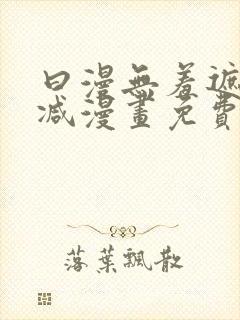 日漫無羞遮
减漫畫免費
落葉飄散